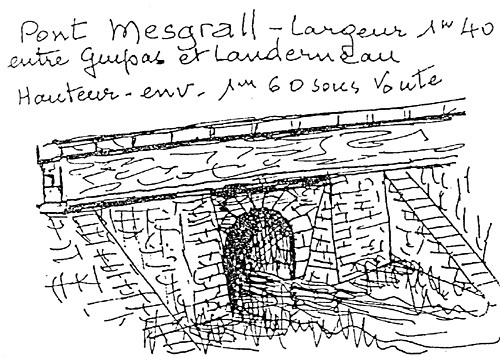 Pont Mesgrall - Largeur 1m 40
entre Guipas et Landerneau
Hauteur - env. 1m 60 sous Voute